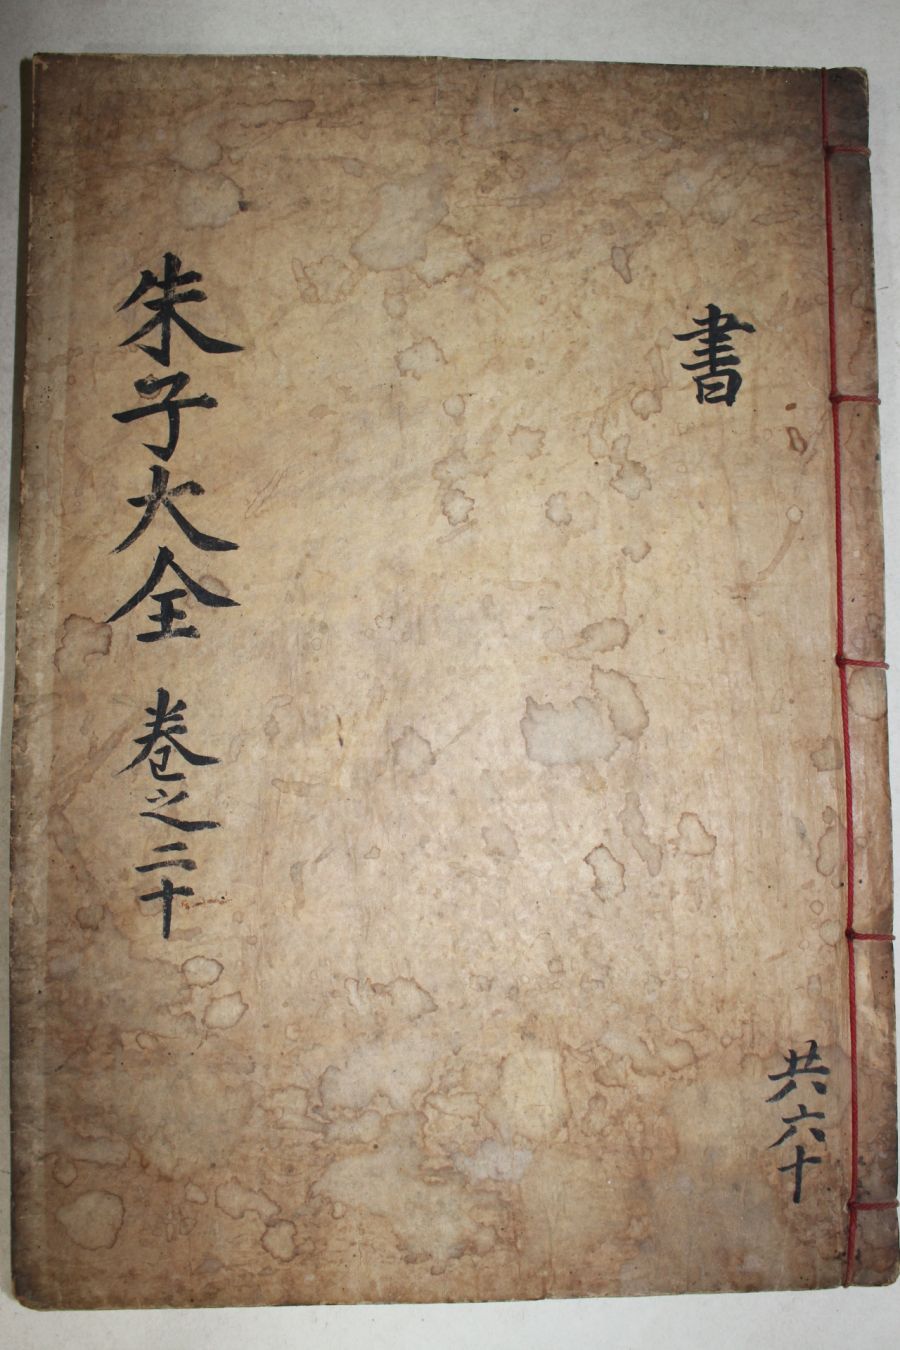 書
朱子大全 卷之二十
共六十